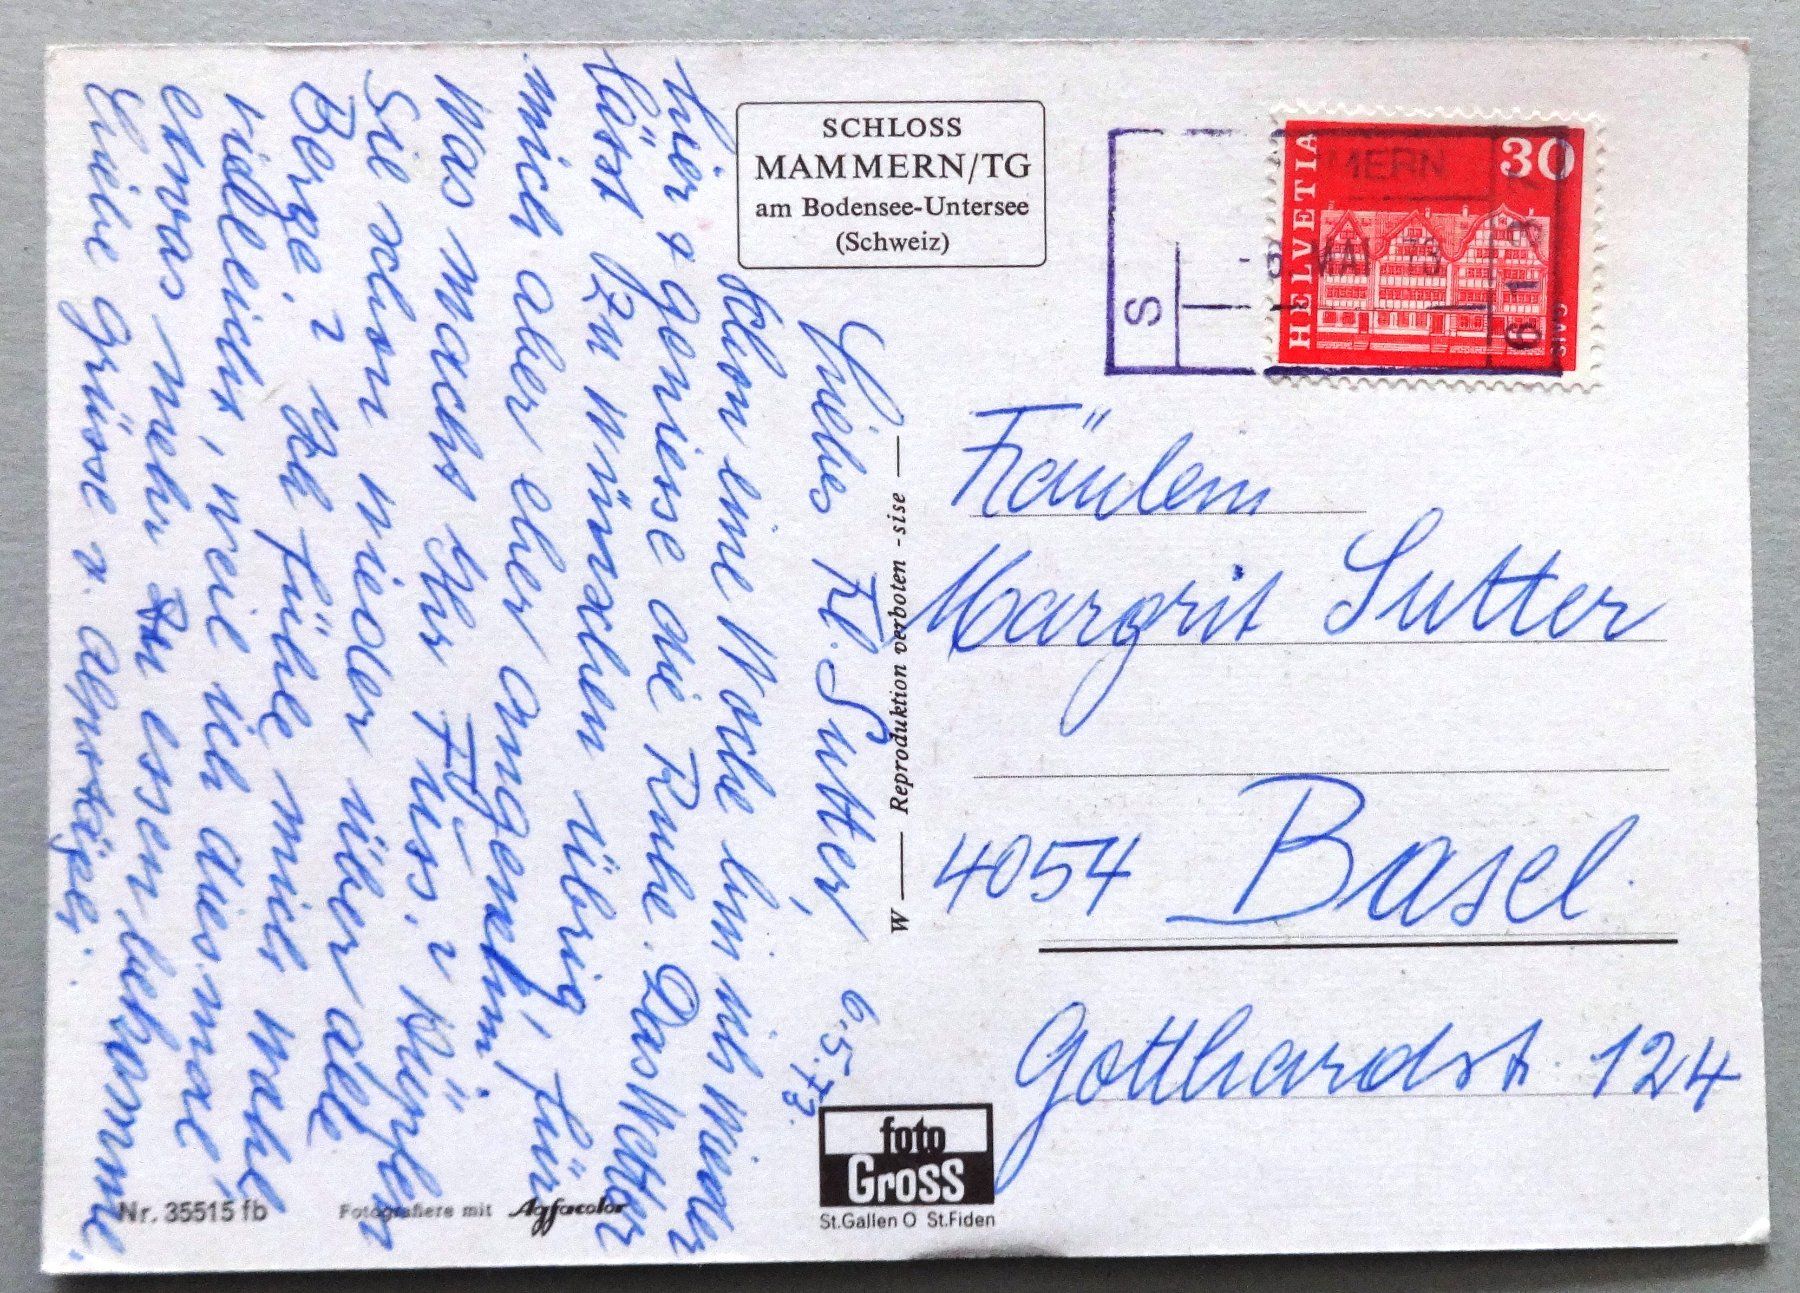 SCHLOSS
MAMMERN/TG
am Bodensee-Untersee
(Schweiz)
HELVETIA
30
GAIS
MMERN
MAI 73
S
6. 5. 73.
Liebes Frl. Sutter,
Schon eine Woche bin ich wieder
hier & geniesse die Ruhe. Das Wetter
lässt zu wünschen übrig, für
mich aber eher angenehm.
Was macht Ihr Fuss? Dürfen
Sie schon wieder über alle
Berge? Ich fühle mich wohl
vielleicht, weil ich diesmal
etwas mehr zu essen bekomme.
Liebe Grüsse v.
W — Reproduktion verboten -sise —
Fräulein
Margrit Sutter
4054 Basel.
Gotthardstr. 124
foto
Gross
St.Gallen O St.Fiden
Nr. 35515 fb
Fotografiere mit Agfacolor